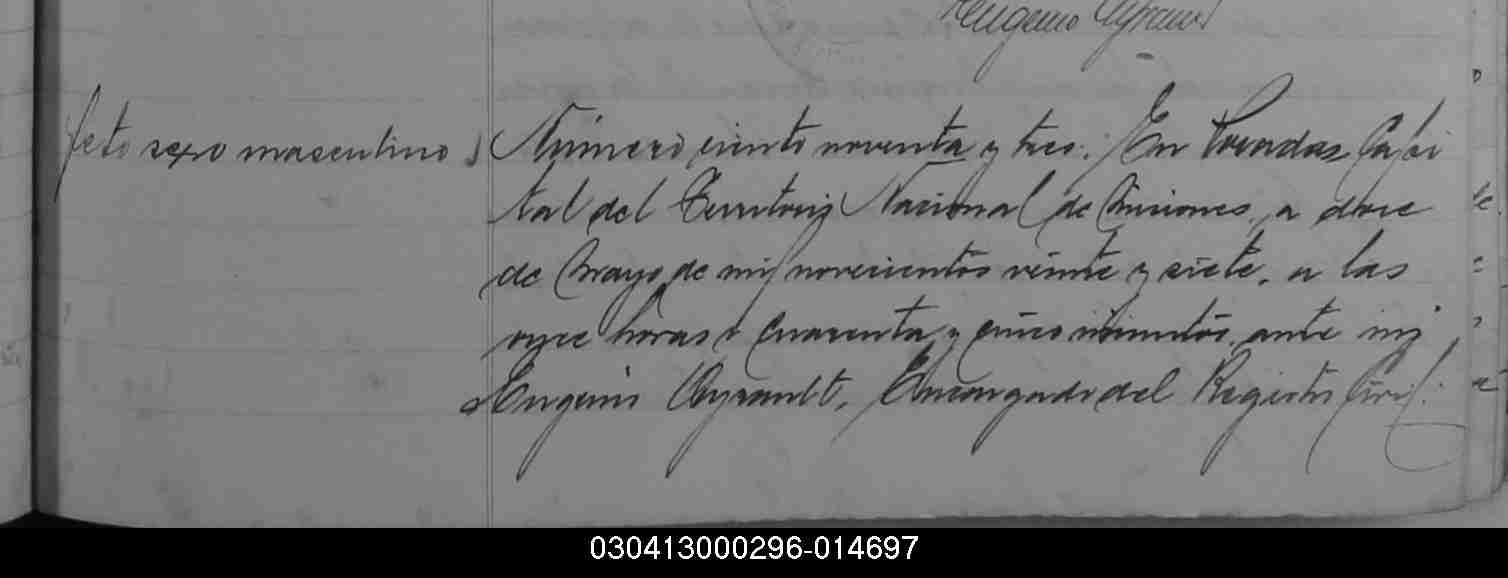 Eugenio Ayrault
feto sexo masculino
Número ciento noventa y tres: En Posadas Capi
tal del Territorio Nacional de Misiones, a doce
de Mayo de mil novecientos veinte y siete, a las
once horas y cuarenta y cinco minutos, ante mi
Eugenio Ayrault, Encargado del Registro Civil:
030413000296-014697